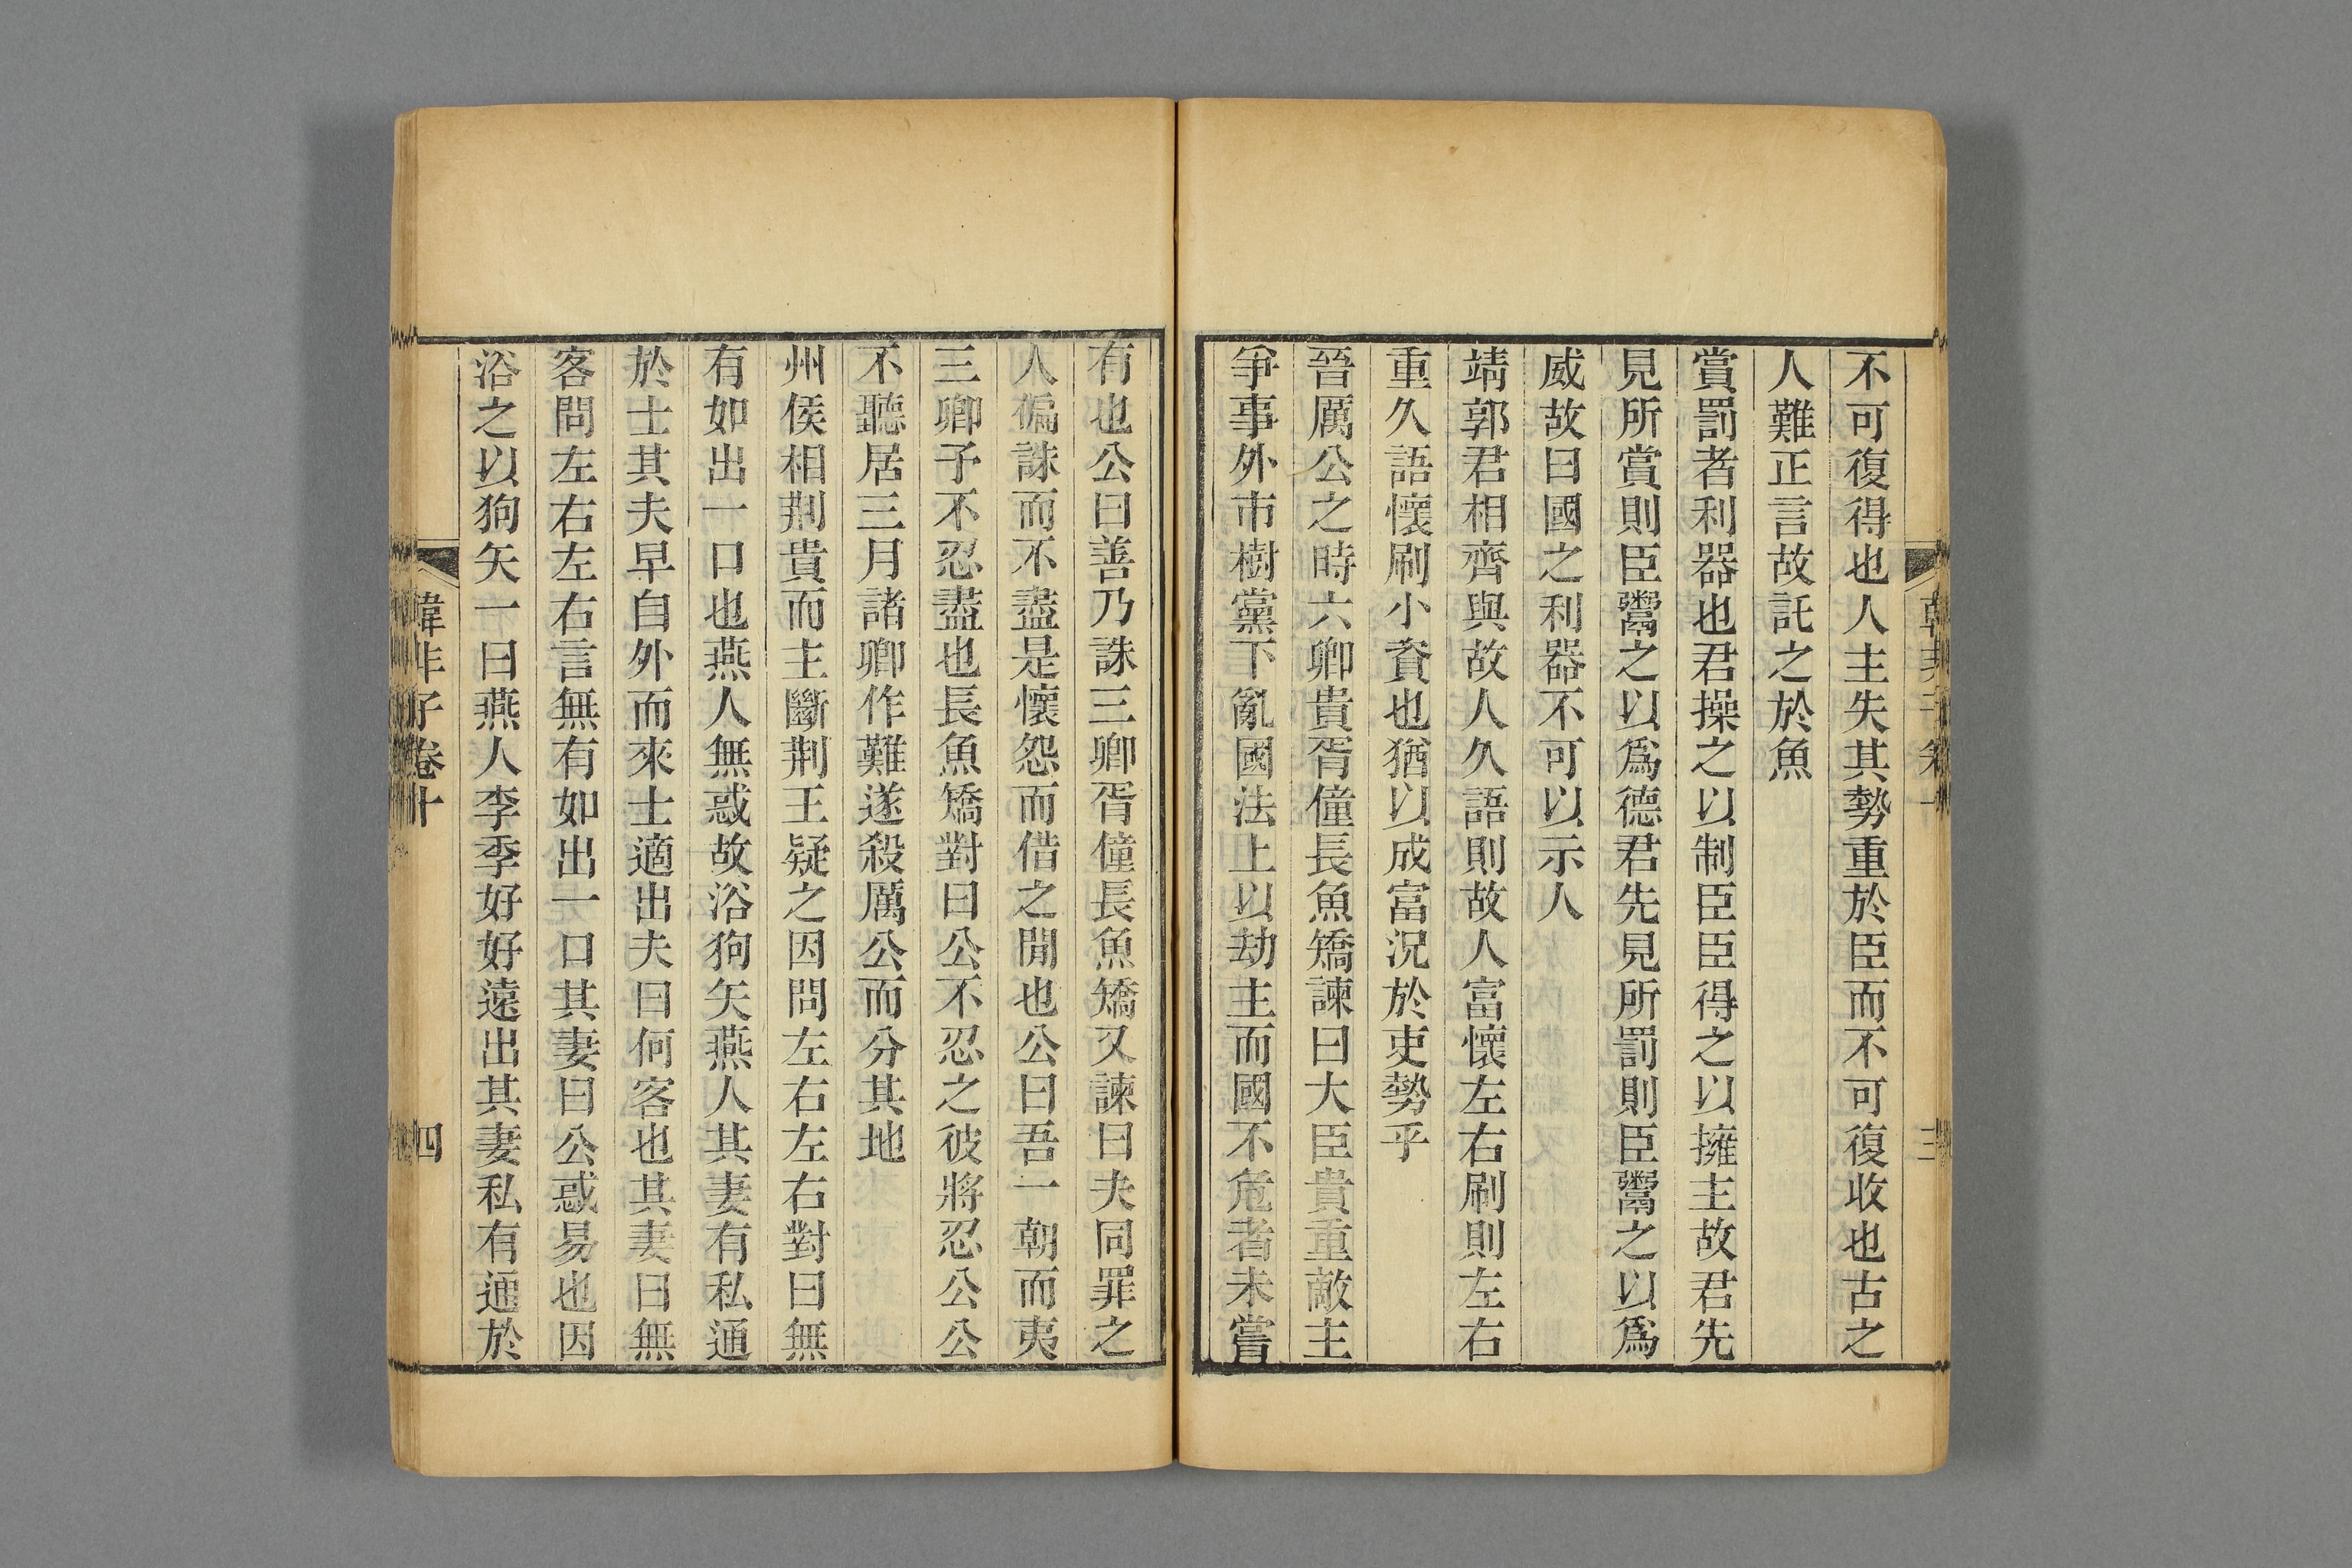 不可復得也人主失其勢重於臣而不可復收也古之
人難正言故託之於魚
賞罰者利器也君操之以制臣臣得之以擁主故君先
見所賞則臣鬻之以爲德君先見所罰則臣鬻之以爲
威故曰國之利器不可以示人
靖郭君相齊與故人久語則故人富懷左右刷則左右
重久語懷刷小資也猶以成富況於吏勢乎
晉厲公之時六卿貴胥僮長魚矯諫曰大臣貴重敵主
爭事外市樹黨下亂國法上以劫主而國不危者未嘗
有也公曰善乃誅三卿胥僮長魚矯又諫曰夫同罪之
人偏誅而不盡是懷怨而借之閒也公曰吾一朝而夷
三卿予不忍盡也長魚矯對曰公不忍之彼將忍公公
不聽居三月諸卿作難遂殺厲公而分其地
州侯相荆貴而主斷荆王疑之因問左右左右對曰無
有如出一口也燕人無惑故浴狗矢燕人其妻有私通
於士其夫早自外而來士適出夫曰何客也其妻曰無
客問左右左右言無有如出一口其妻曰公惑易也因
浴之以狗矢一曰燕人李季好好遠出其妻私有通於
韓非子卷十
四